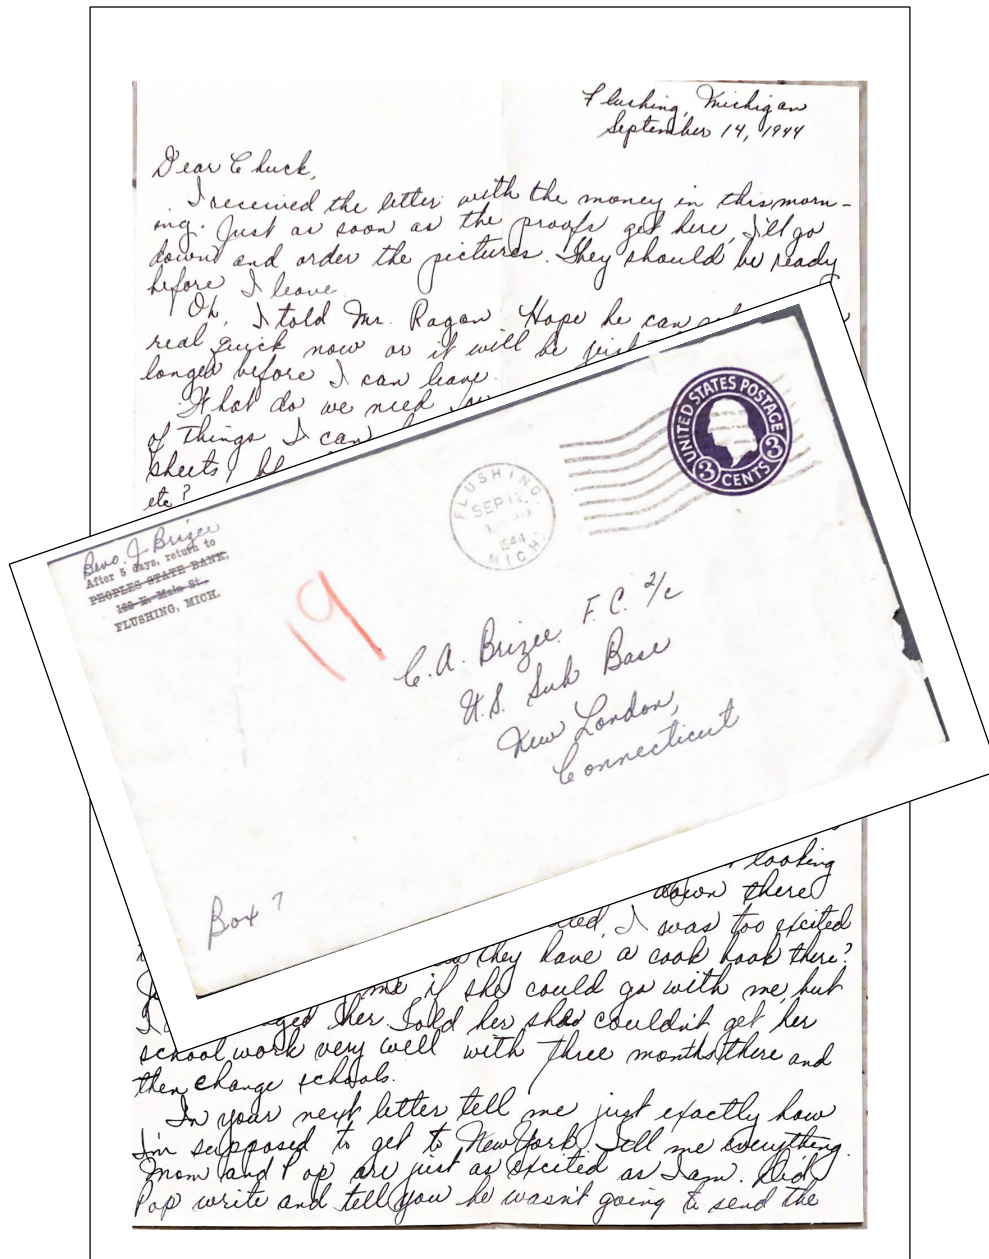 Flushing, Michigan
September 14, 1944
Dear Chuck,
I received the letter with the money in this morn-
ing. Just as soon as the proofs get here, I'll go
down and order the pictures. They should be ready
before I leave.
Oh, I told Mr. Ragan. Hope he can
real quick now or it will be just
longer before I can leave.
What do we need
of things I can
sheets,
etc?
Beva. J. Brizee
After 5 days, return to
PEOPLES STATE BANK,
Main St.,
FLUSHING, MICH.
FLUSHING
SEP 12
1944
MICH.
UNITED STATES POSTAGE
3 CENTS 3
19
C. A. Brizee F. C. 2/c
U.S. Sub Base
New London,
Connecticut
Box 7
looking
down there
I was too excited
they have a cook book there?
me if she could go with me, but
her. Told her she couldn't get her
school work very well with three months there and
then change schools.
In your next letter tell me just exactly how
I'm supposed to get to New York. Tell me everything.
Mom and Pop are just as excited as I am. Did
Pop write and tell you he wasn't going to send the